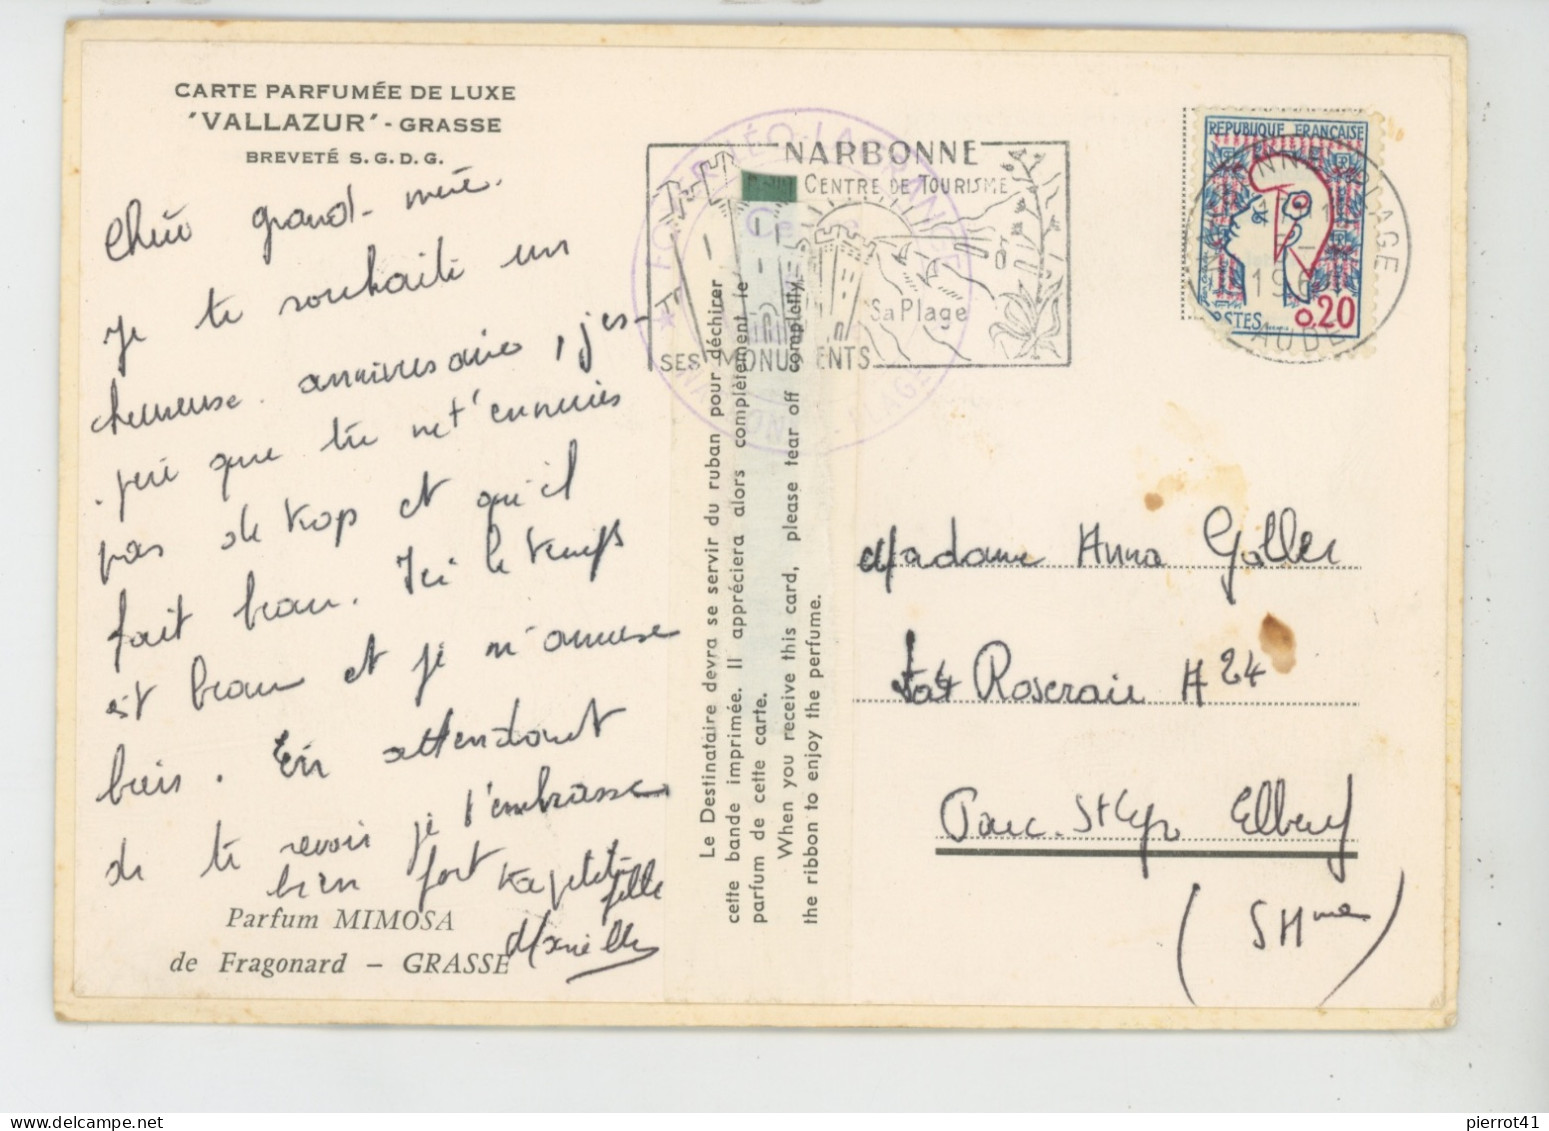 CARTE PARFUMÉE DE LUXE
'VALLAZUR' - GRASSE
BREVETÉ S.G.D.G.
Chère grand-mère.
Je te souhaite un
heureuse anniversaire, j'es-
père que tu ne t'ennuies
pas de trop et qu'il
fait beau. Ici le temps
est beau et je m'amuse
bien. En attendant
de te revoir je t'embrasse
bien fort ta petite
fille
Parfum MIMOSA
de Fragonard – GRASSE
Le Destinataire devra se servir du ruban pour déchirer
cette bande imprimée. Il appréciera alors complètement le
parfum de cette carte.
When you receive this card, please tear off completly
the ribbon to enjoy the perfume.
NARBONNE
CENTRE DE TOURISME
Sa Plage
SES MONUMENTS
NARBONNE PLAGE
AUDE
RÉPUBLIQUE FRANÇAISE
POSTES
0,20
Madame Anna Galler
Roseraie H 24
Parc St Cyr Elbeuf
(S Hme)
pierrot41